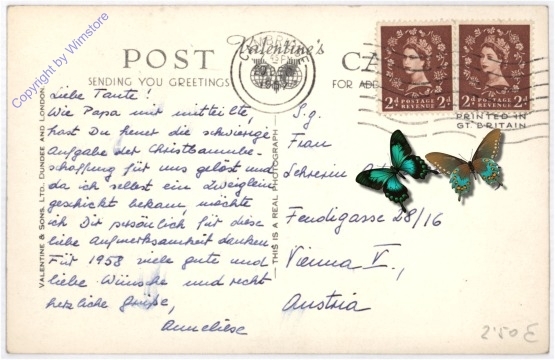 Copyright by Wimstore
POST
Valentine's
CA
SENDING YOU GREETINGS
FOR ADD
CAMBRIDGE
2d POSTAGE REVENUE 2d
2d POSTAGE REVENUE 2d
PRINTED IN
GT. BRITAIN
VALENTINE & SONS. LTD. DUNDEE AND LONDON
THIS IS A REAL PHOTOGRAPH
Liebe Tante!
Wie Papa mir mitteilte,
hast Du heuer die schwierige
Aufgabe der Christbaumbe-
schaffung für uns gelöst und
da ich selbst ein Zweiglein
geschickt bekam, möchte
ich Dir persönlich für diese
liebe Aufmerksamkeit danken.
Für 1958 viele gute und
liebe Wünsche und recht
herzliche Grüße,
Anneliese
S.g.
Frau
Schrerin
Fendigasse 28/16
Vienna V.,
Austria
2'50 E